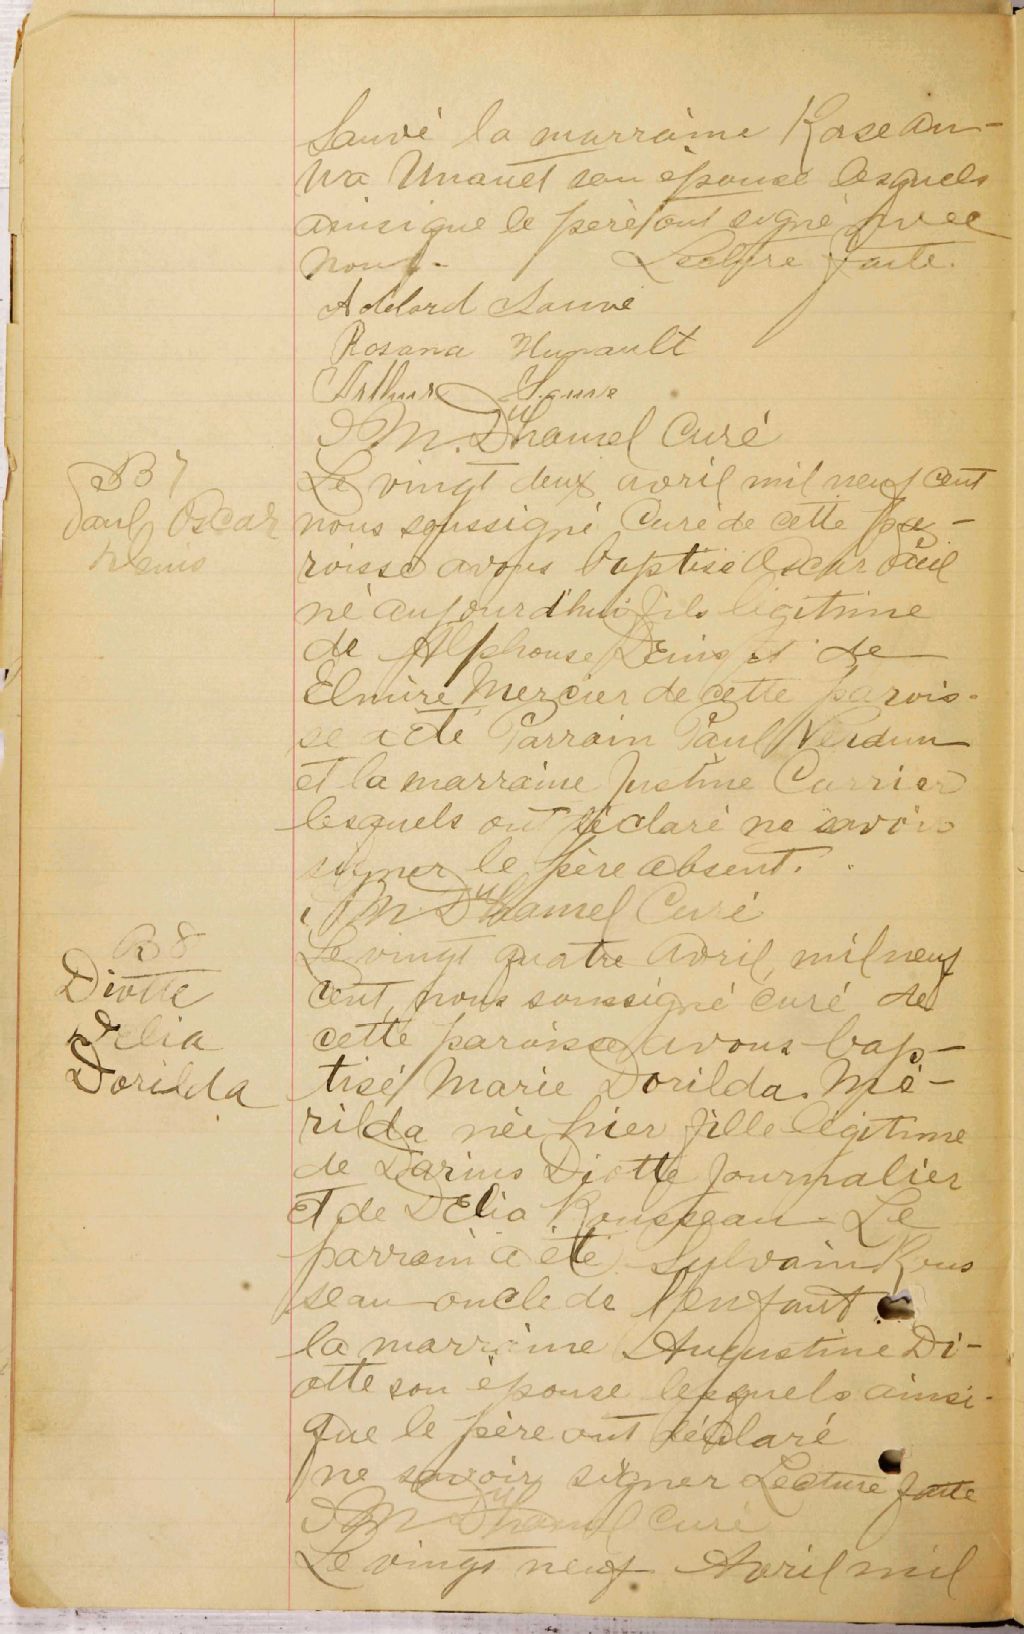 Sauvé la marraine Rose An-
na Unauet son épouse lesquels
ainsi que le père ont signé avec
nous. Lecture faite.
Adélard Sauvé
Rosana Hunault
Arthur Sauve
J M. Duhamel Curé
B 7
Paul Oscar
Denis
Le vingt deux avril mil neuf cent
nous soussigné Curé de cette pa-
roisse avons baptisé Oscar Paul
né aujourd'hui fils légitime
de Alphonse Denis et de
Elmire Mercier de cette parois-
se a été Parrain Paul Verdun
et la marraine Justine Carrier
lesquels ont déclaré ne savoir
signer le père absent.
J M Duhamel Curé
B 8
Diotte
Delia
Dorilda
Le vingt quatre Avril, mil neuf
cent, nous soussigné curé de
cette paroisse avons bap-
tisé Marie Dorilda Mé-
rilda née hier fille légitime
de Darius Diotte Journalier
et de Délia Rousseau. Le
parrain a été Sylvain Rous
seau oncle de l'enfant
la marraine Augustine Di-
otte son épouse lesquels ainsi-
que le père ont déclaré
ne savoir signer Lecture faite
J M Duhamel Curé
Le vingt neuf Avril mil